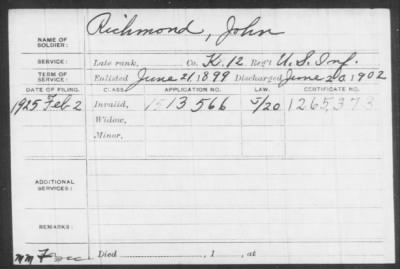 NAME OF SOLDIER: Richmond, John
SERVICE: Late rank, Co. K, 12 Reg't U.S. Inf.
TERM OF SERVICE: Enlisted June 21, 1899 Discharged June 20, 1902
DATE OF FILING. CLASS. APPLICATION NO. LAW. CERTIFICATE NO.
1925 Feb 2 Invalid, 1513566 5/20 1265,373
Widow,
Minor,
ADDITIONAL SERVICES:
REMARKS:
Died , 1 , at